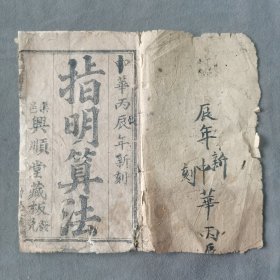 中華丙辰年新刻
指明算法
興順堂藏板
辰年新刻
中華丙辰